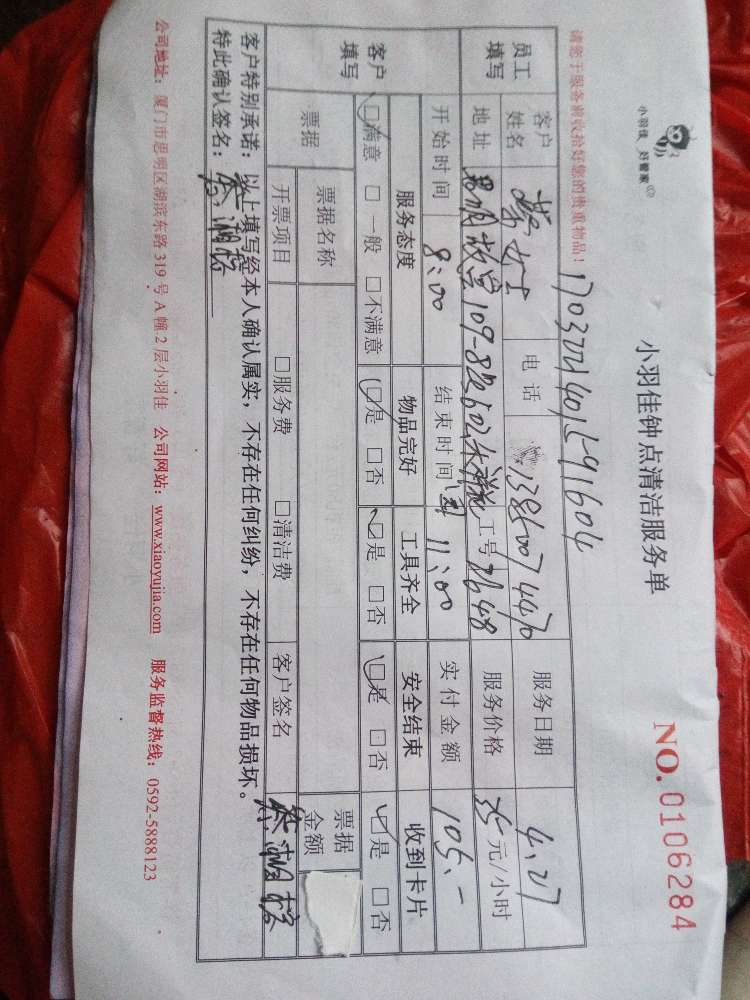 小羽佳 好管家
小羽佳钟点清洁服务单
NO.0106284
请您于服务前收拾好您的贵重物品!
员工填写 客户姓名 女士 电话 13860074470 服务日期 4.27
地址 109-8 602 工号 2648 服务价格 35元/小时
开始时间 8:00 结束时间 11:00 实付金额 105.-
客户填写 服务态度 物品完好 工具齐全 安全结束 收到卡片
☑满意 □一般 □不满意 ☑是 □否 ☑是 □否 ☑是 □否 ☑是 □否
票据 票据名称 票据金额
开票项目 □服务费 □清洁费 客户签名
客户特别承诺:以上填写经本人确认属实,不存在任何纠纷,不存在任何物品损坏。
特此确认签名:
公司地址:厦门市思明区湖滨东路319号A幢2层小羽佳 公司网站:www.xiaoyujia.com 服务监督热线:0592-5888123